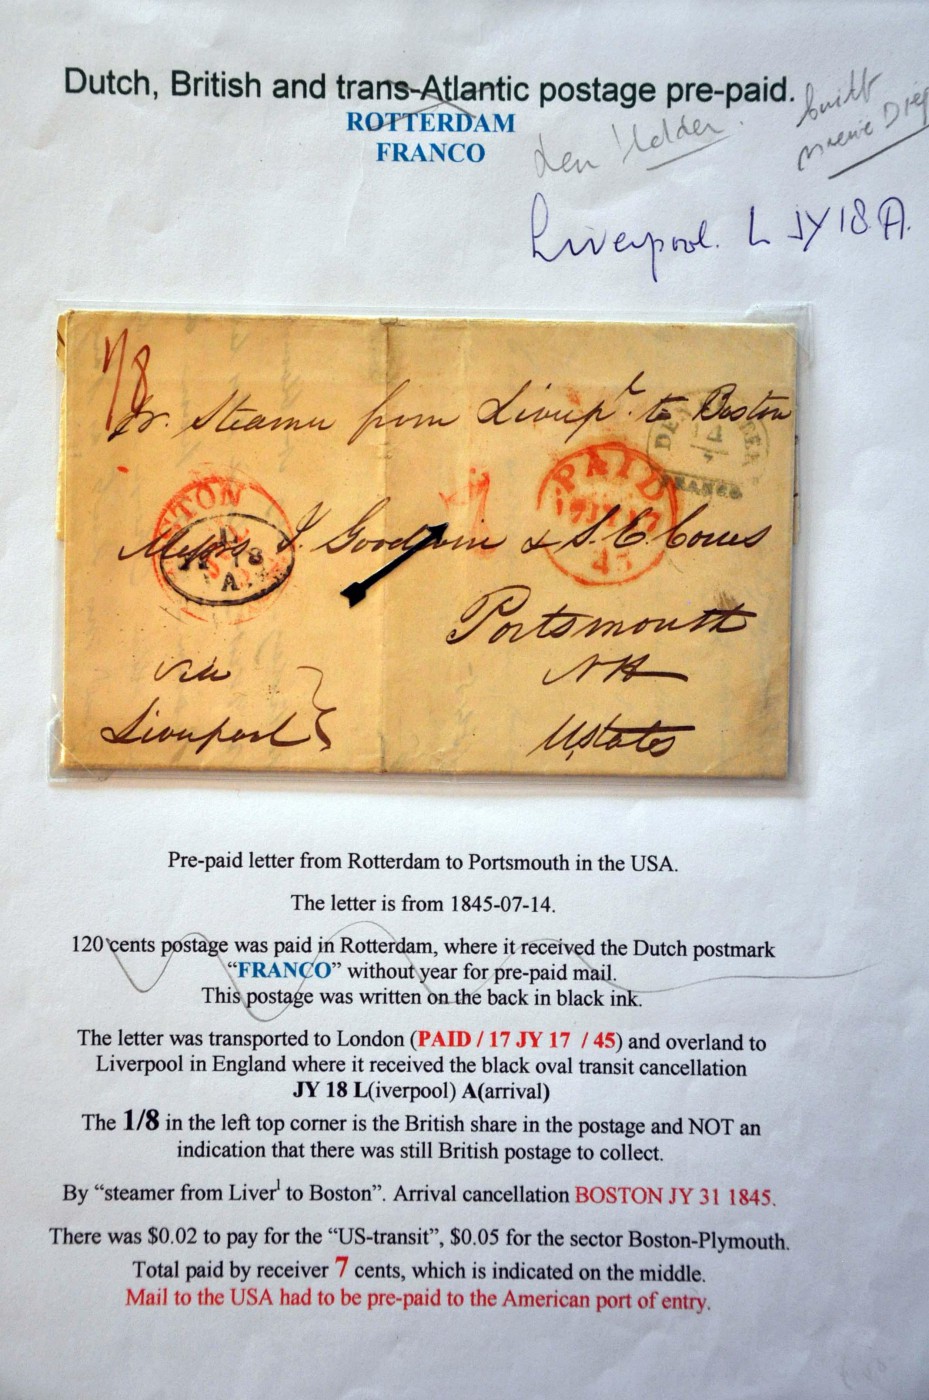 Dutch, British and trans-Atlantic postage pre-paid.
ROTTERDAM
FRANCO
den Helder.
Liverpool. L JY 18 A.
1/8
Pr. Steamer from Liverpl. to Boston
FRANCO
PAID
17 JY 17
45
L
JY 18
A
7
Messrs I. Goodwin & S. E. Coues
Portsmouth
NH
UStates
via
Liverpool
Pre-paid letter from Rotterdam to Portsmouth in the USA.
The letter is from 1845-07-14.
120 cents postage was paid in Rotterdam, where it received the Dutch postmark
“FRANCO” without year for pre-paid mail.
This postage was written on the back in black ink.
The letter was transported to London (PAID / 17 JY 17 / 45) and overland to
Liverpool in England where it received the black oval transit cancellation
JY 18 L(iverpool) A(arrival)
The 1/8 in the left top corner is the British share in the postage and NOT an
indication that there was still British postage to collect.
By “steamer from Liverl to Boston”. Arrival cancellation BOSTON JY 31 1845.
There was $0.02 to pay for the “US-transit”, $0.05 for the sector Boston-Plymouth.
Total paid by receiver 7 cents, which is indicated on the middle.
Mail to the USA had to be pre-paid to the American port of entry.